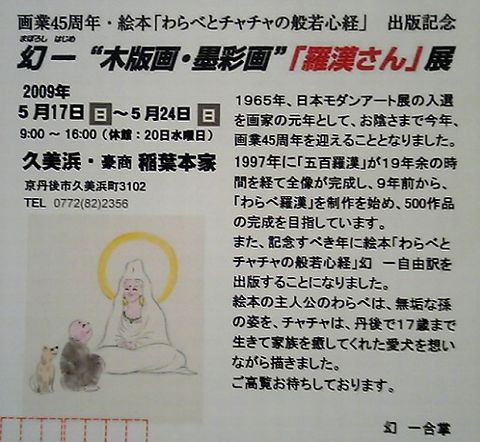 画業45周年・絵本「わらべとチャチャの般若心経」 出版記念
まぼろし はじめ
幻 一 “木版画・墨彩画”「羅漢さん」展
2009年
5月17日 日 ～5月24日 日
9:00 ～ 16:00（休館：20日水曜日）
久美浜・豪商 稲葉本家
京丹後市久美浜町3102
TEL 0772(82)2356
1965年、日本モダンアート展の入選
を画家の元年として、お陰さまで今年、
画業45周年を迎えることとなりました。
1997年に「五百羅漢」が19年余の時間
を経て全像が完成し、9年前から、
「わらべ羅漢」を制作を始め、500作品
の完成を目指しています。
また、記念すべき年に絵本「わらべと
チャチャの般若心経」幻 一自由訳を
出版することになりました。
絵本の主人公のわらべは、無垢な孫
の姿を、チャチャは、丹後で17歳まで
生きて家族を癒してくれた愛犬を想い
ながら描きました。
ご高覧お待ちしております。
幻 一合掌